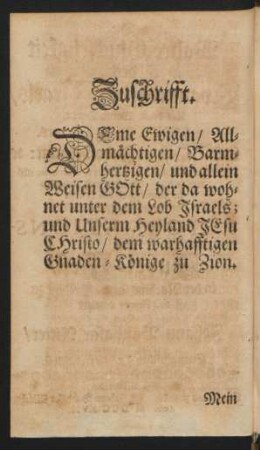 Zuschrifft.
DEme Ewigen/ All-
mächtigen/ Barm-
hertzigen/ und allein
Weisen GOtt/ der da woh-
net unter dem Lob Israels;
und Unserm Heyland JEsu
CHristo/ dem warhafftigen
Gnaden-Könige zu Zion.
Mein